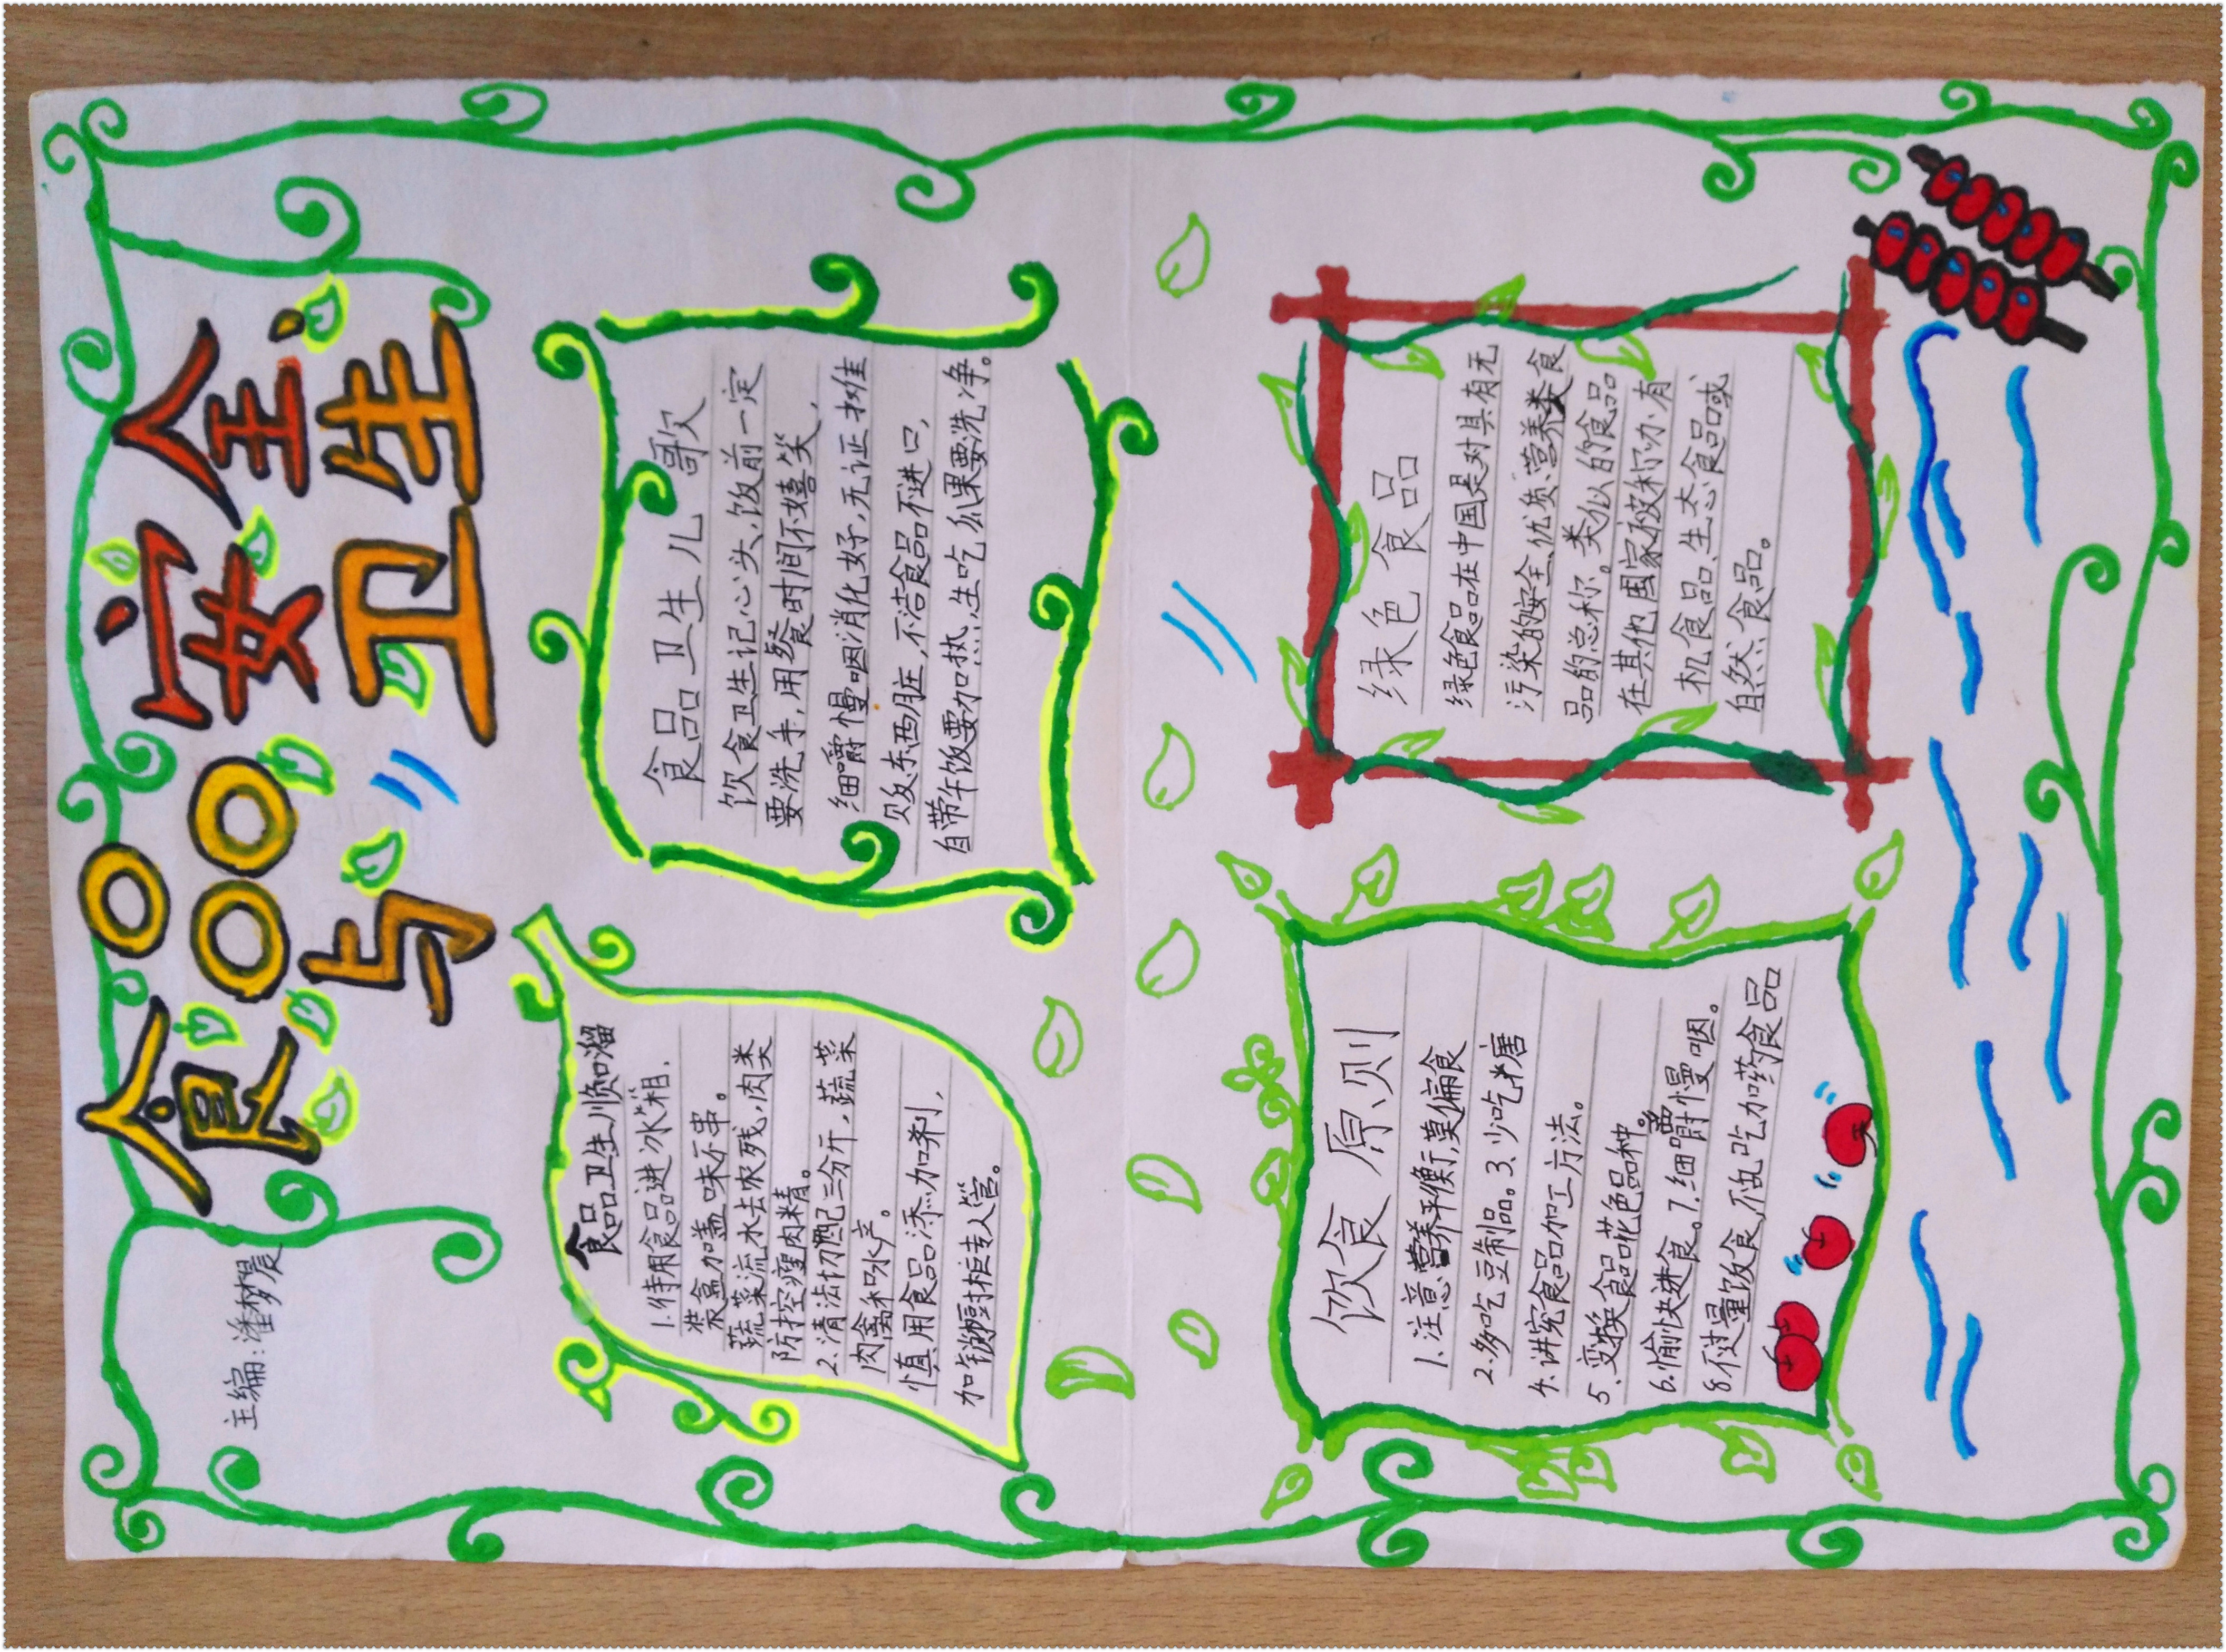 食品安全
与卫生
主编:潘梦晨
食品卫生顺口溜
1.待用食品进冰箱.
装盒加盖味不串。
蔬菜流水去农残,肉类
防控瘦肉精。
2.清洁切配三分开,蔬菜
肉禽和水产。
慎用食品添加剂,
加锁橱柜专人管。
食品卫生儿歌
饮食卫生记心头,饭前一定
要洗手,用餐时间不嬉笑,
细嚼慢咽消化好,无证摊
贩东西脏,不洁食品不进口,
自带午饭要加热,生吃瓜果要洗净。
饮食原则
1.注意营养平衡,莫偏食
2.多吃豆制品。3、少吃糖
4.讲究食品加工方法。
5、变换食品花色品种。
6.愉快进食。7.细嚼慢咽。
8.不过量饭食,不乱吃加药食品
绿色食品
绿色食品在中国是对具有无
污染的安全、优质、营养类食
品的总称。类似的食品
在其他国家被称办有
机食品、生态食品或
自然食品。